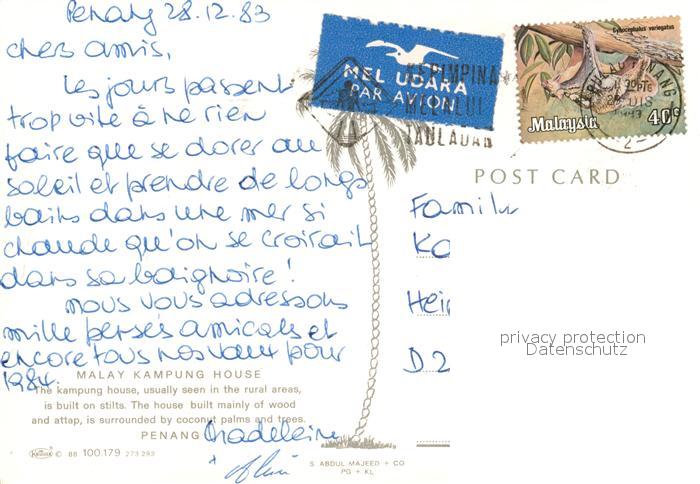 Penang 28.12.83
chers amis,
Les jours passent
trop vite à ne rien
faire que se dorer au
soleil et prendre de longs
bains dans une mer si
chaude qu'on se croirait
dans sa baignoire !
nous vous adressons
mille pensés amicales et
encore tous nos vœux pour
1984.
MALAY KAMPUNG HOUSE
The kampung house, usually seen in the rural areas,
is built on stilts. The house built mainly of wood
and attap, is surrounded by coconut palms and trees.
PENANG
Madeleine
+
© 88 100.179 273 293
S. ABDUL MAJEED + CO
PG + KL
MEL UDARA
PAR AVION
KEPIMPINAN
MELALUI
TAULADAN
Cynocephalus variegatus
Malaysia 40c
PULAU PINANG
28 DIS
2
POST CARD
Famili
Ko
Hei
D 2
privacy protection
Datenschutz